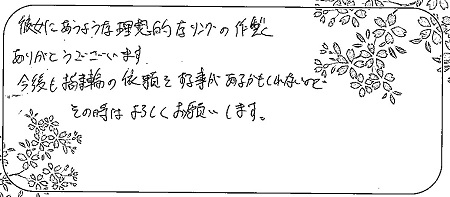 彼女にあうような理想的なリングの作製
ありがとうございます。
今後も指輪の依頼をする事があるかもしれないので
その時はよろしくお願いします。